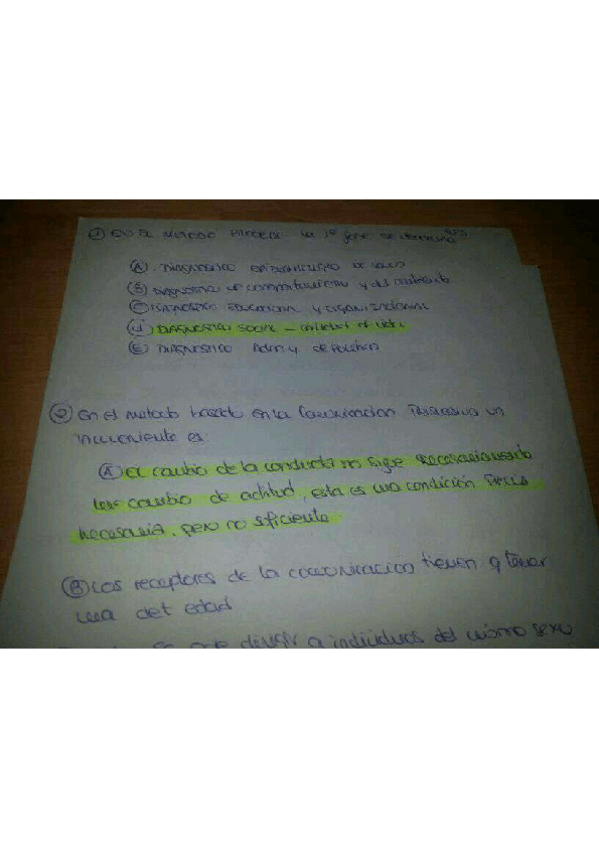 ① EN EL METODO PRECEDE la 1ª fase se denomina
Ⓐ. DIAGNOSTICO EPIDEMIOLOGICO DE SALUD
Ⓑ DIAGNOSTICO de comportamiento y del ambiente
Ⓒ DIAGNOSTICO EDUCACIONAL Y ORGANIZACIONAL
ⓓ DIAGNOSTICO SOCIAL - calidad de vida
Ⓔ DIAGNOSTICO Adm y de politica
② En el metodo basado en la Comunicacion Persuasiva un
inconveniente es:
Ⓐ El cambio de la conducta no sigue necesariamente
cambio de actitud, esta es una condición Previa
necesaria, pero no suficiente
Ⓑ Los receptores de la comunicacion tienen q tener
una det edad
que dirigir a individuos del mismo sexo